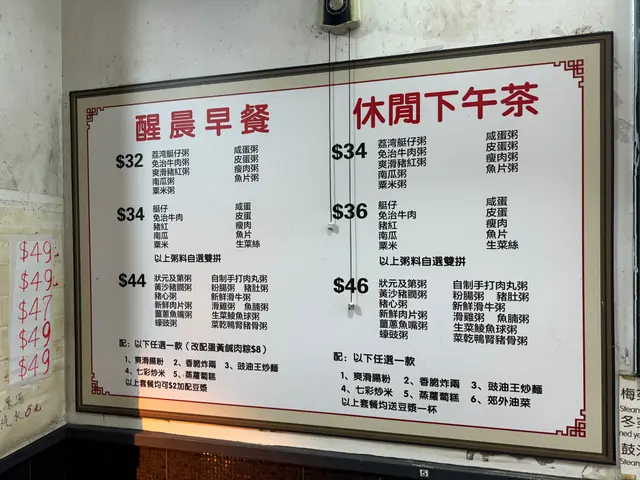 醒晨早餐
$32
荔湾艇仔粥 咸蛋粥
免治牛肉粥 皮蛋粥
爽滑豬紅粥 瘦肉粥
南瓜粥 魚片粥
粟米粥
$34
艇仔 咸蛋
免治牛肉 皮蛋
豬紅 瘦肉
南瓜 魚片
粟米 生菜絲
以上粥料自選雙拼
$44
狀元及第粥 自制手打肉丸粥
黃沙豬膶粥 粉腸粥 豬肚粥
豬心粥 新鮮滑牛粥
新鮮肉片粥 滑雞粥 魚腩粥
薑蔥魚嘴粥 生菜鯪魚球粥
蠔豉粥 菜乾鴨腎豬骨粥
配：以下任選一款（改配蛋黃鹹肉粽$8）
1、爽滑腸粉 2、香脆炸兩 3、豉油王炒麵
4、七彩炒米 5、蒸蘿蔔糕
以上套餐均可$2加配豆漿
休閒下午茶
$34
荔湾艇仔粥 咸蛋粥
免治牛肉粥 皮蛋粥
爽滑豬紅粥 瘦肉粥
南瓜粥 魚片粥
粟米粥
$36
艇仔 咸蛋
免治牛肉 皮蛋
豬紅 瘦肉
南瓜 魚片
粟米 生菜絲
以上粥料自選雙拼
$46
狀元及第粥 自制手打肉丸粥
黃沙豬膶粥 粉腸粥 豬肚粥
豬心粥 新鮮滑牛粥
新鮮肉片粥 滑雞粥 魚腩粥
薑蔥魚嘴粥 生菜鯪魚球粥
蠔豉粥 菜乾鴨腎豬骨粥
配：以下任選一款
1、爽滑腸粉 2、香脆炸兩 3、豉油王炒麵
4、七彩炒米 5、蒸蘿蔔糕 6、郊外油菜
以上套餐均送豆漿一杯
$49
$49
$47
$49
$49
汽水5元
5
梅
Steam
冬
Steam
鼓
Steam